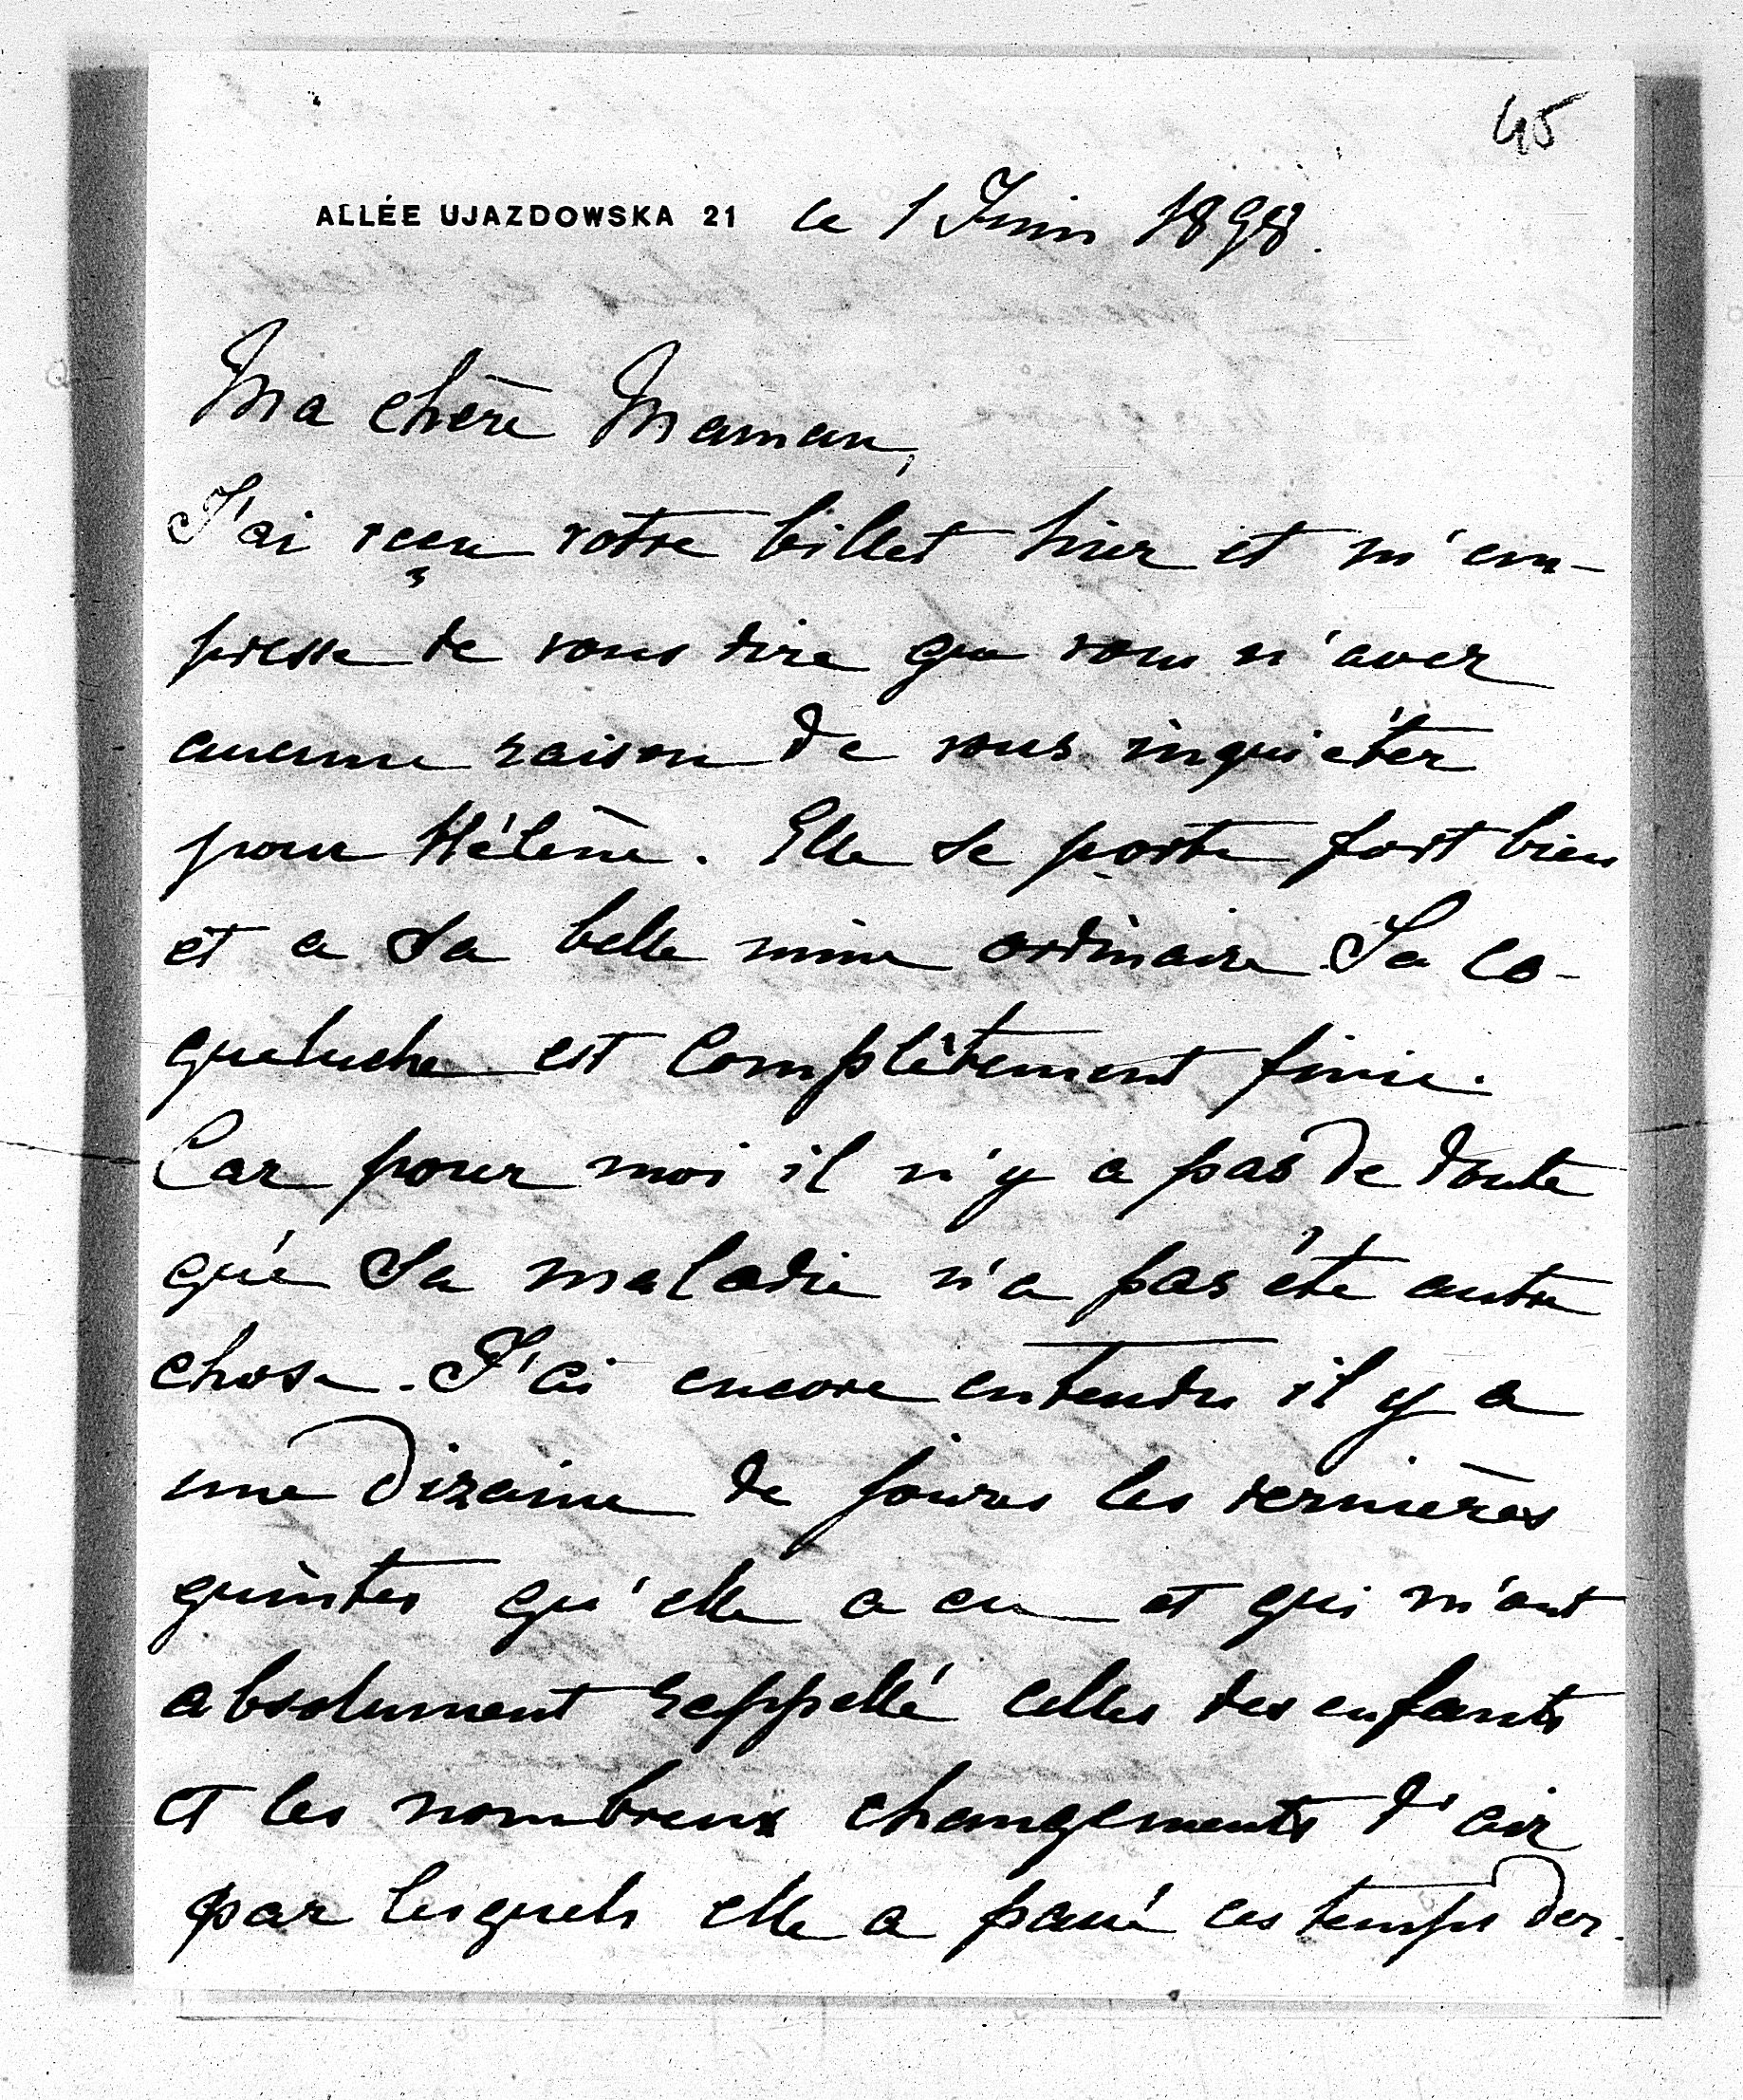 45
ALLÉE UJAZDOWSKA 21 le 1 Juin 1898.
Ma chère Maman,
J'ai reçu votre billet hier et m'em-
presse de vous dire que vous n'avez
aucune raison de vous inquiéter
pour Hélène. Elle se porte fort bien
et a sa belle mine ordinaire. Sa co-
queluche est complètement finie.
Car pour moi il n'y a pas de doute
que sa maladie n'a pas été autre
chose. J'ai encore entendu il y a
une dizaine de jours les dernières
quintes qu'elle a eu et qui m'ont
absolument rappellé celles des enfants
et les nombreux changements d'air
par lesquels elle a passé ces temps der-